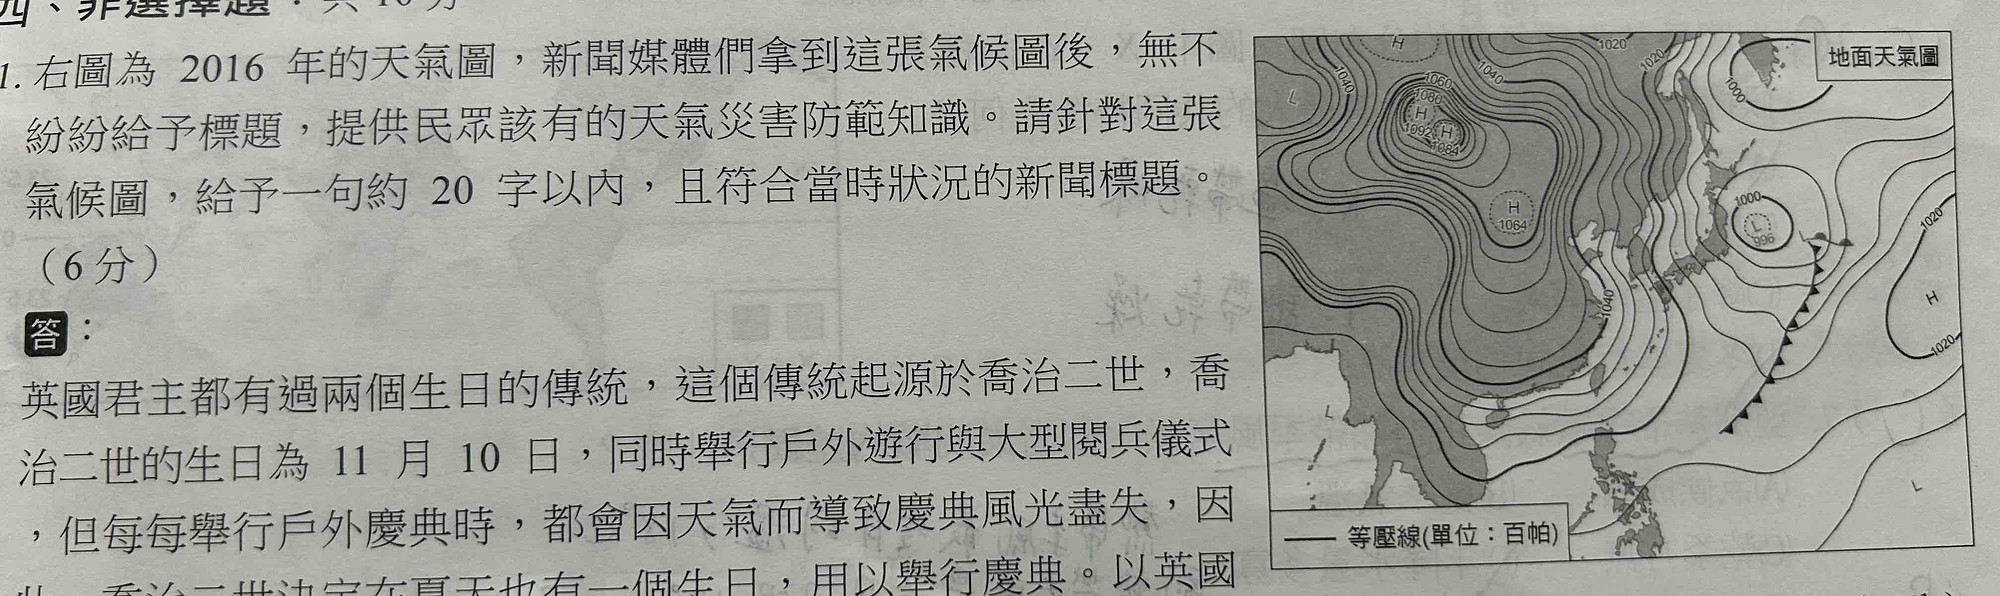 四、非選擇題：共 10 分
1. 右圖為 2016 年的天氣圖，新聞媒體們拿到這張氣候圖後，無不
紛紛給予標題，提供民眾該有的天氣災害防範知識。請針對這張
氣候圖，給予一句約 20 字以內，且符合當時狀況的新聞標題。
（6 分）
答：
英國君主都有過兩個生日的傳統，這個傳統起源於喬治二世，喬
治二世的生日為 11 月 10 日，同時舉行戶外遊行與大型閱兵儀式
，但每每舉行戶外慶典時，都會因天氣而導致慶典風光盡失，因
此，喬治二世決定在夏天也有一個生日，用以舉行慶典。以英國
地面天氣圖
H
1020
1020
1040
1040
1060
1080
H
1092
H
1084
L
1000
H
1064
1000
L
996
1020
1040
H
1020
L
L
等壓線(單位：百帕)